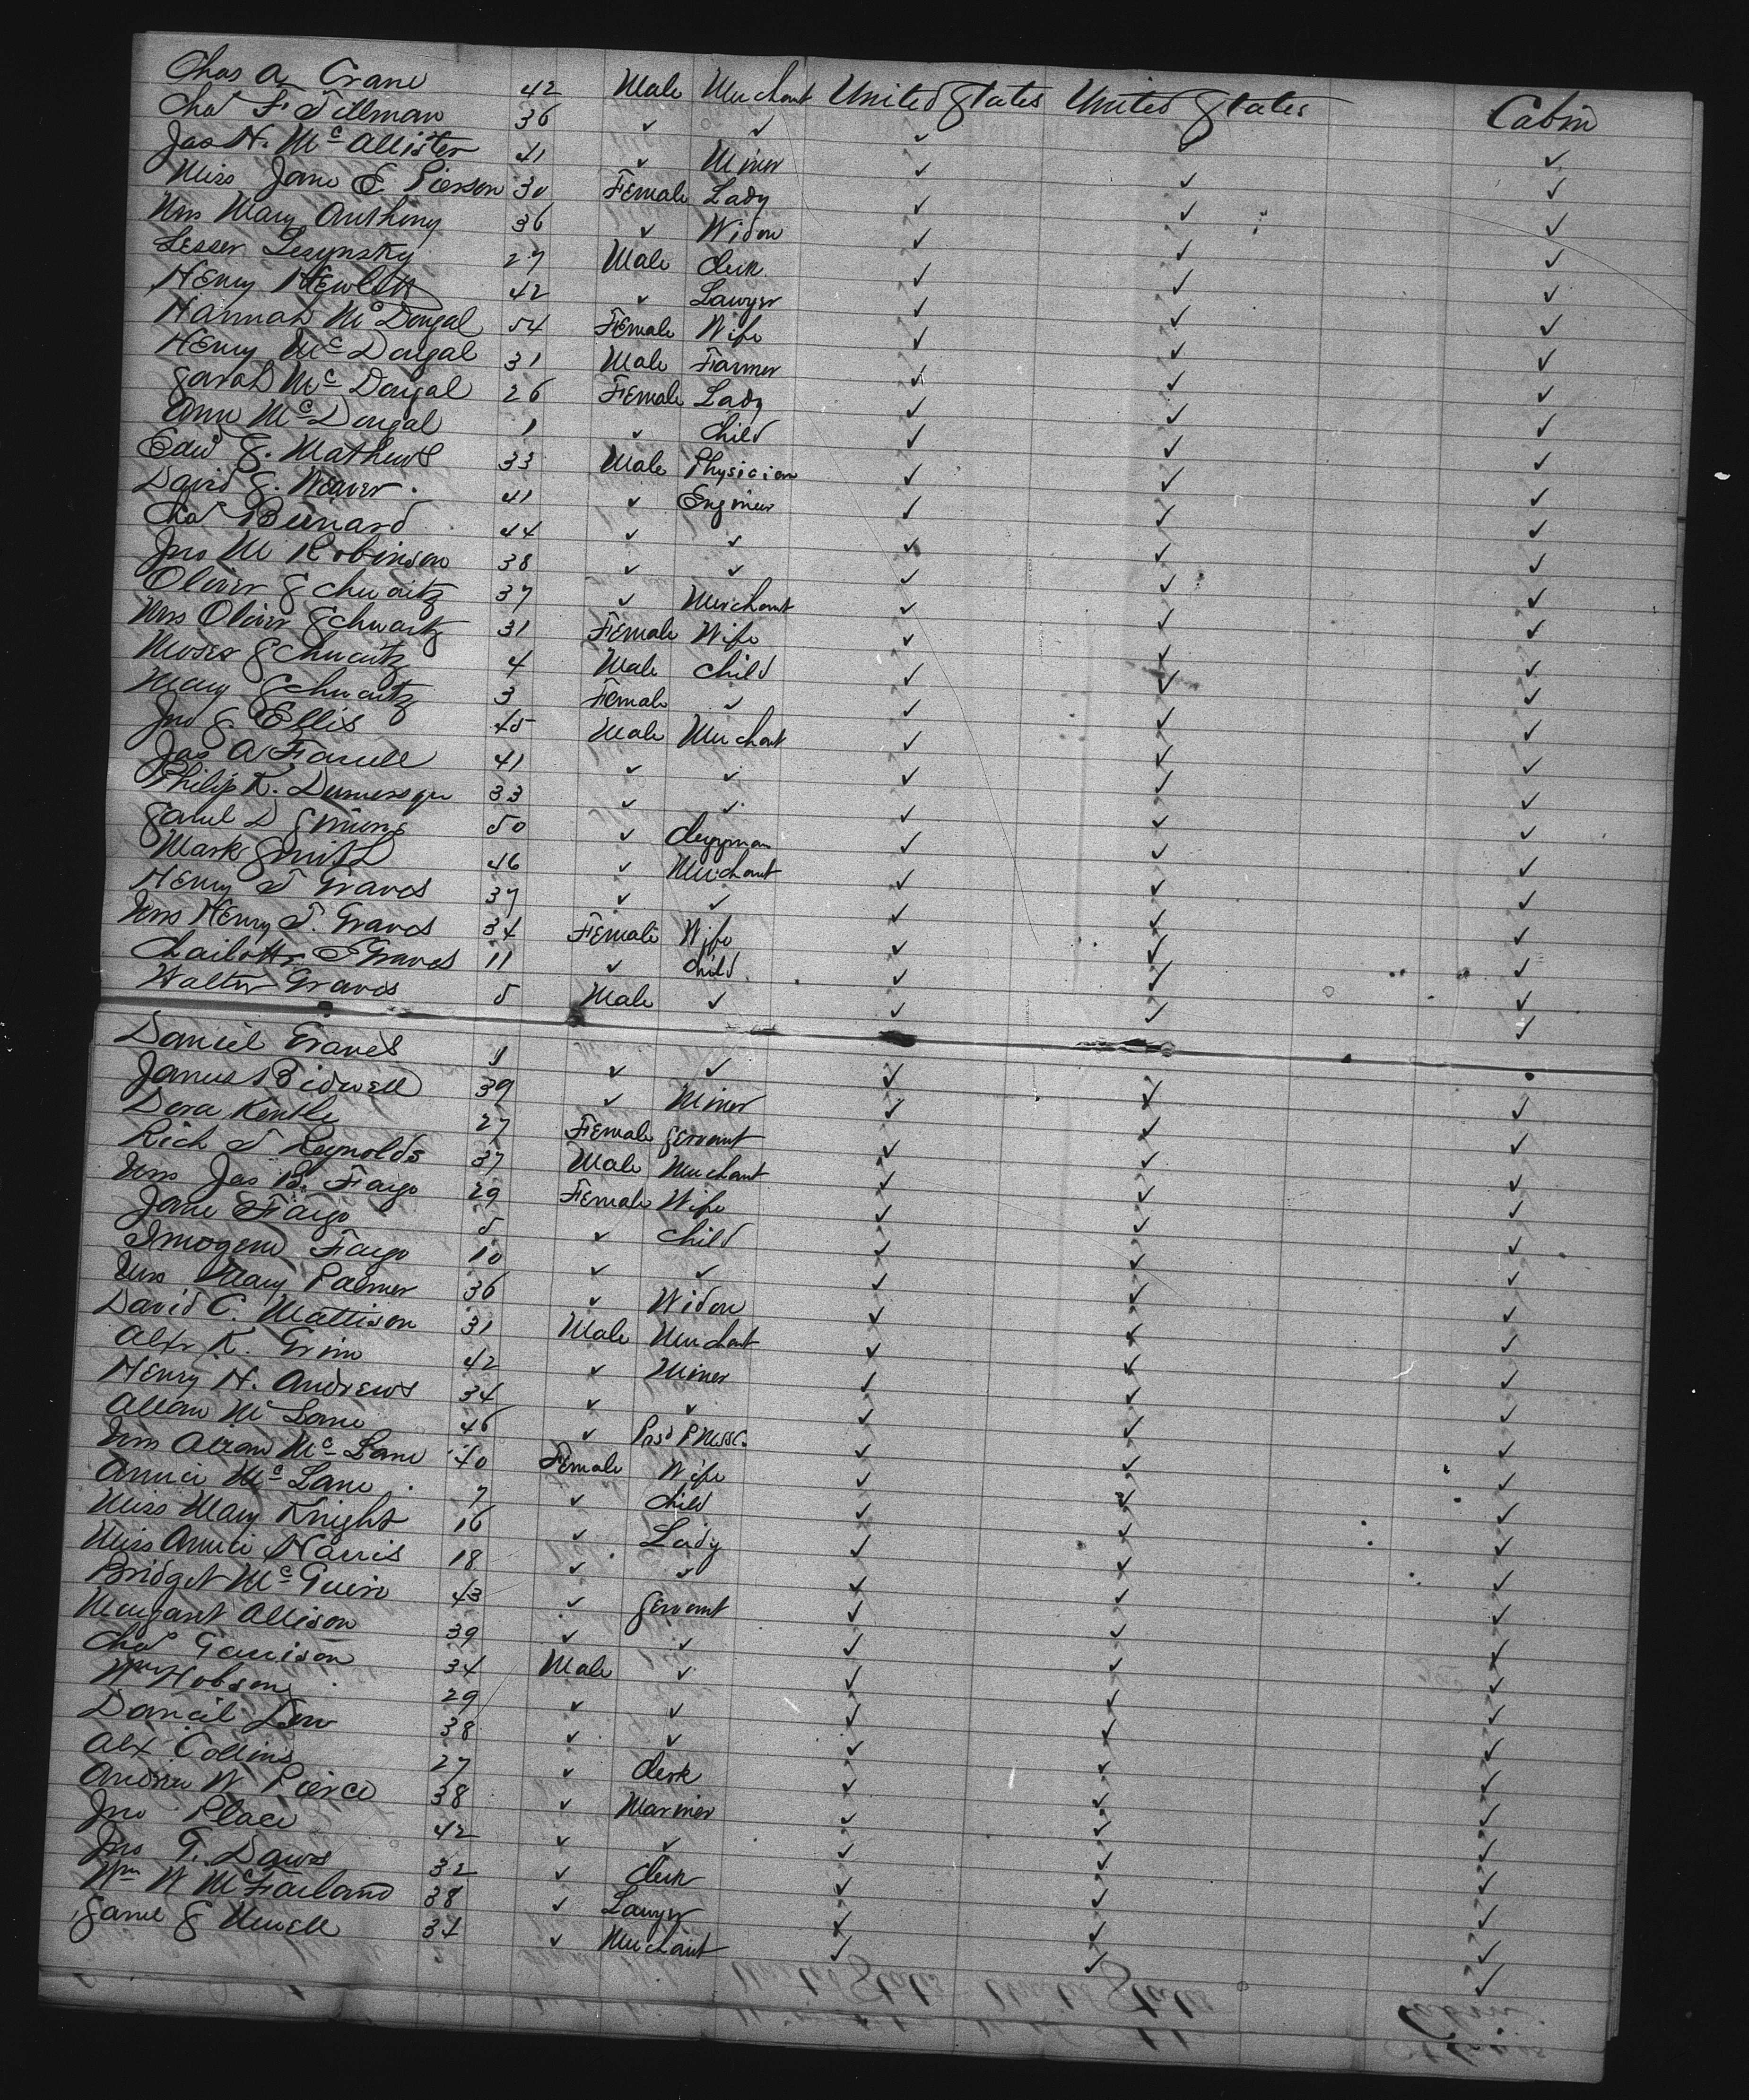 Chas A. Crane 42 Male Merchant United States United States Cabin
Chas F. Tillman 36 ✓ ✓ ✓ ✓ ✓
Jas H. McAllister 41 ✓ Miner ✓ ✓ ✓
Miss Jane E. Pierson 30 Female Lady ✓ ✓ ✓
Mrs Mary Anthony 36 ✓ Widow ✓ ✓ ✓
Lesser Lesynsky 27 Male Clerk ✓ ✓ ✓
Henry Hewlett 42 ✓ Lawyer ✓ ✓ ✓
Hannah McDougal 54 Female Wife ✓ ✓ ✓
Henry McDougal 31 Male Farmer ✓ ✓ ✓
Sarah McDougal 26 Female Lady ✓ ✓ ✓
Ann McDougal 1 ✓ Child ✓ ✓ ✓
Edwd S. Mathews 33 Male Physician ✓ ✓ ✓
David S. Weaver 41 ✓ Engineer ✓ ✓ ✓
Chas Bernard 44 ✓ ✓ ✓ ✓ ✓
Jno M Robinson 38 ✓ ✓ ✓ ✓ ✓
Oliver Schwartz 37 ✓ Merchant ✓ ✓ ✓
Mrs Oliver Schwartz 31 Female Wife ✓ ✓ ✓
Moses Schwartz 4 Male Child ✓ ✓ ✓
Mary Schwartz 3 Female ✓ ✓ ✓ ✓
Jno S Ellis 45 Male Merchant ✓ ✓ ✓
Jas A Farrell 41 ✓ ✓ ✓ ✓ ✓
Philip K. 33 ✓ ✓ ✓ ✓ ✓
Saml D Simons 50 ✓ Clergyman ✓ ✓ ✓
Mark Smith 46 ✓ Merchant ✓ ✓ ✓
Henry T Graves 37 ✓ ✓ ✓ ✓ ✓
Mrs Henry T. Graves 34 Female Wife ✓ ✓ ✓
Charlotte T Graves 11 ✓ Child ✓ ✓ ✓
Walter Graves 5 Male ✓ ✓ ✓ ✓
Daniel Graves 9 ✓ ✓ ✓ ✓
James Bidwell 39 ✓ Miner ✓ ✓ ✓
Dora 27 Female Servant ✓ ✓ ✓
Rich T Reynolds 37 Male Merchant ✓ ✓ ✓
Mrs Jas B. Fargo 29 Female Wife ✓ ✓ ✓
Jane Fargo 5 ✓ Child ✓ ✓ ✓
Imogene Fargo 10 ✓ ✓ ✓ ✓ ✓
Mrs Mary Palmer 36 ✓ Widow ✓ ✓ ✓
David C. Mattison 31 Male Merchant ✓ ✓ ✓
Alexr K. Grim 42 ✓ Miner ✓ ✓ ✓
Henry H. Andrews 34 ✓ ✓ ✓ ✓ ✓
Allan McLane 46 ✓ ✓ ✓ ✓
Mrs Allan McLane 40 Female Wife ✓ ✓ ✓
Annie McLane 7 ✓ Child ✓ ✓ ✓
Miss Mary Knight 16 ✓ Lady ✓ ✓ ✓
Miss Annie Harris 18 ✓ ✓ ✓ ✓ ✓
Bridget McGuire 43 ✓ Servant ✓ ✓ ✓
Margaret Allison 39 ✓ ✓ ✓ ✓ ✓
Chas Garrison 34 Male ✓ ✓ ✓ ✓
Wm Hobson 29 ✓ ✓ ✓ ✓ ✓
Daniel 38 ✓ ✓ ✓ ✓ ✓
Alex Collins 27 ✓ Clerk ✓ ✓ ✓
Andrew W Pierce 38 ✓ Mariner ✓ ✓ ✓
Jno Place 42 ✓ ✓ ✓ ✓ ✓
Jno T. Dawes 32 ✓ Clerk ✓ ✓ ✓
Wm W McFarland 38 ✓ Lawyer ✓ ✓ ✓
Saml S 34 ✓ Merchant ✓ ✓ ✓